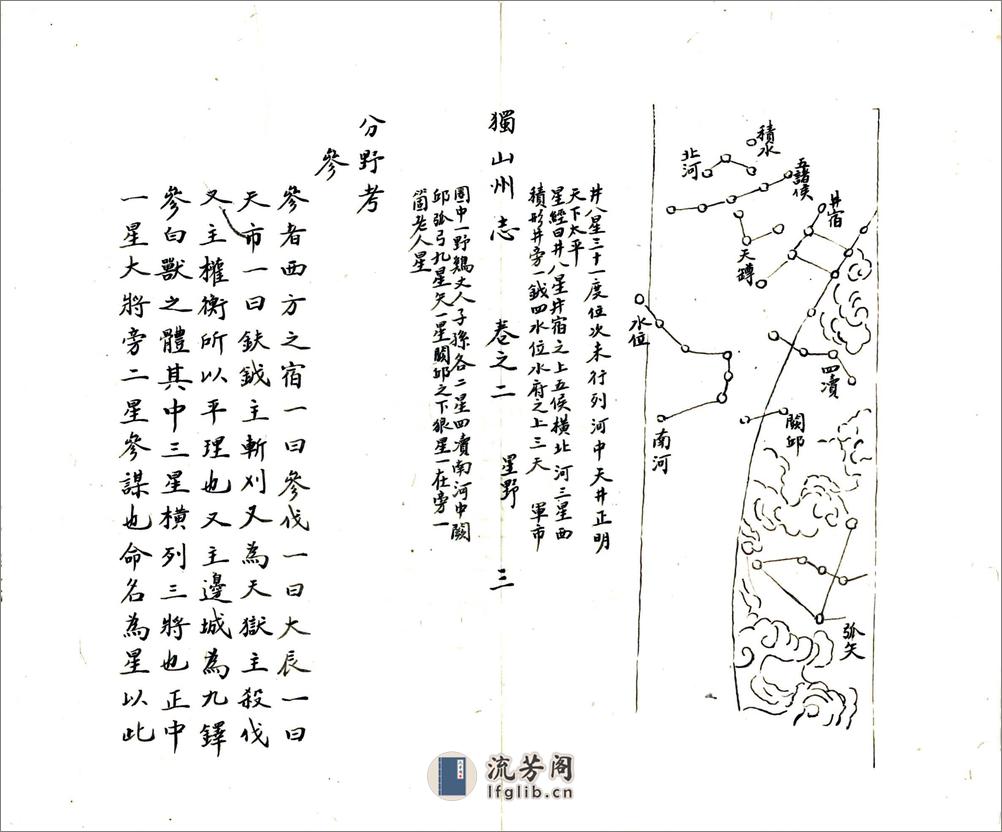 積水
北河
五諸侯
井宿
天罇
水位
四瀆
闕邱
南河
弧矢
井八星三十一度位次未行列河中天井正明
天下太平
星經曰井八星井宿之上五侯橫北河三星西
積形井旁一鉞四水位水府之上三天　軍市
獨山州志　卷之二　星野　三
圖中一野鷄丈人子孫各二星四瀆南河中闕
邱弧弓九星矢一星闕邱之下狼星一在旁一
箇老人星
分野考
參
參者西方之宿一曰參伐一曰大辰一曰
天市一曰鈇鉞主斬刈又為天獄主殺伐
又主權衡所以平理也又主邊城為九鐸
參白獸之體其中三星橫列三將也正中
一星大將旁二星參謀也命名為星以此
流芳阁
lfglib.cn